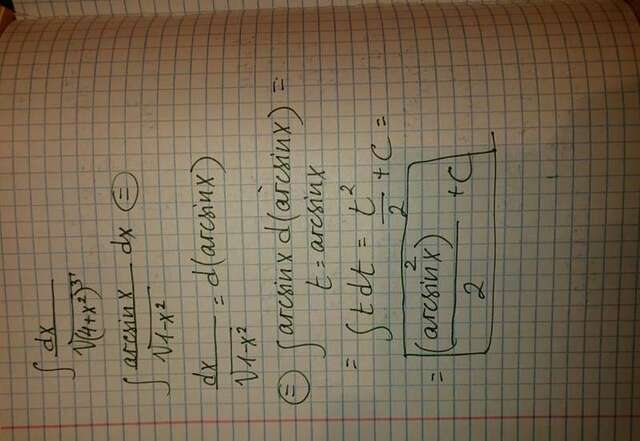 ∫ dx / √(4+x²)³
∫ arcsin x / √1-x² dx ⊜
dx / √1-x² = d(arcsin x)
⊜ ∫ arcsin x d(arcsin x) =
t = arcsin x
= ∫ t dt = t²/2 + C =
= (arcsin² x) / 2 + C